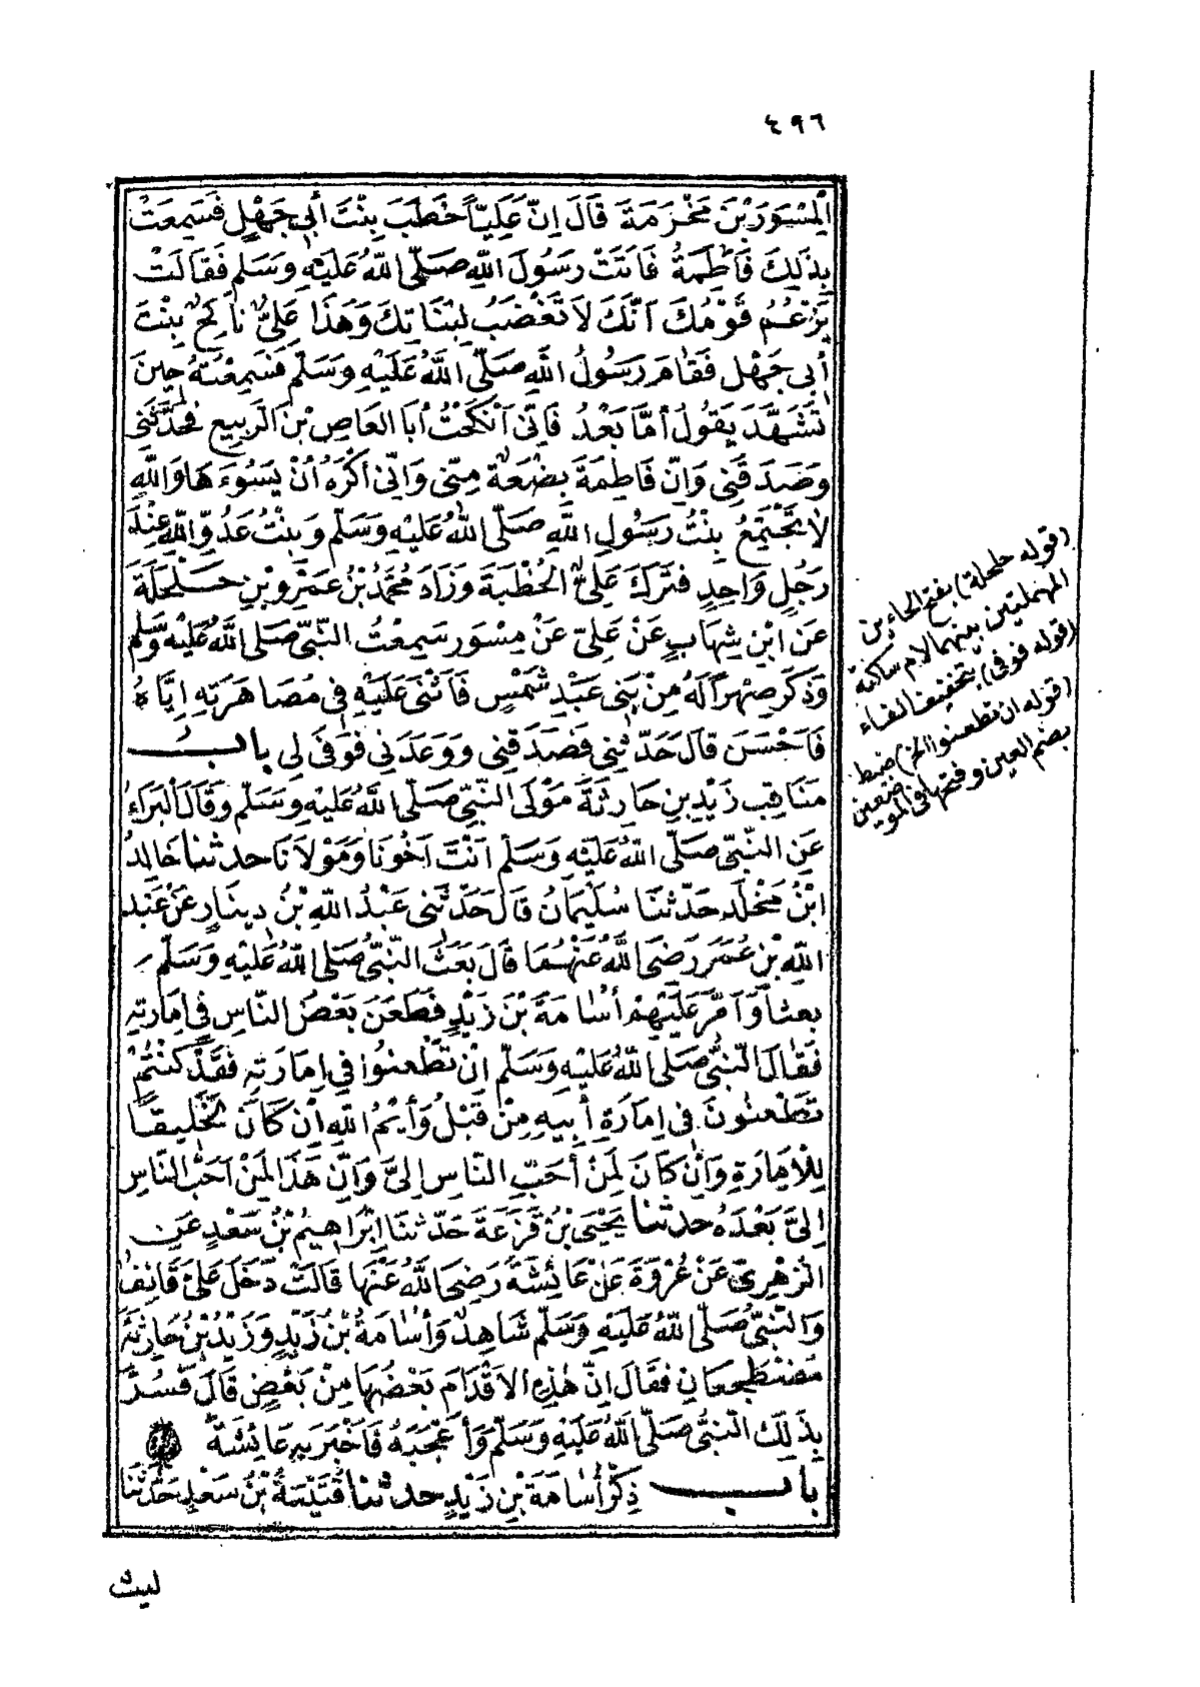 ٤٩٦
الْمِسْوَرَ بْنَ مَخْرَمَةَ قَالَ إِنَّ عَلِيّاً خَطَبَ بِنْتَ أَبِي جَهْلٍ فَسَمِعَتْ
بِذَلِكَ فَاطِمَةُ فَأَتَتْ رَسُولَ اللَّهِ صَلَّى اللَّهُ عَلَيْهِ وَسَلَّمَ فَقَالَتْ
يَزْعُمُ قَوْمُكَ أَنَّكَ لَا تَغْضَبُ لِبَنَاتِكَ وَهَذَا عَلِيٌّ نَاكِحٌ بِنْتَ
أَبِي جَهْلٍ فَقَامَ رَسُولُ اللَّهِ صَلَّى اللَّهُ عَلَيْهِ وَسَلَّمَ فَسَمِعْتُهُ حِينَ
تَشَهَّدَ يَقُولُ أَمَّا بَعْدُ فَإِنِّي أَنْكَحْتُ أَبَا الْعَاصِ بْنَ الرَّبِيعِ فَحَدَّثَنِي
وَصَدَقَنِي وَإِنَّ فَاطِمَةَ بِضْعَةٌ مِنِّي وَإِنِّي أَكْرَهُ أَنْ يَسُوءَهَا وَاللَّهِ
لَا تَجْتَمِعُ بِنْتُ رَسُولِ اللَّهِ صَلَّى اللَّهُ عَلَيْهِ وَسَلَّمَ وَبِنْتُ عَدُوِّ اللَّهِ عِنْدَ
رَجُلٍ وَاحِدٍ فَتَرَكَ عَلِيٌّ الْخُطْبَةَ وَزَادَ مُحَمَّدُ بْنُ عَمْرِو بْنِ حَلْحَلَةَ
عَنِ ابْنِ شِهَابٍ عَنْ عَلِيٍّ عَنْ مِسْوَرٍ سَمِعْتُ النَّبِيَّ صَلَّى اللَّهُ عَلَيْهِ وَسَلَّمَ
وَذَكَرَ صِهْراً لَهُ مِنْ بَنِي عَبْدِ شَمْسٍ فَأَثْنَى عَلَيْهِ فِي مُصَاهَرَتِهِ إِيَّاهُ
فَأَحْسَنَ قَالَ حَدَّثَنِي فَصَدَقَنِي وَوَعَدَنِي فَوَفَى لِي بابُ
مَنَاقِبِ زَيْدِ بْنِ حَارِثَةَ مَوْلَى النَّبِيِّ صَلَّى اللَّهُ عَلَيْهِ وَسَلَّمَ وَقَالَ الْبَرَاءُ
عَنِ النَّبِيِّ صَلَّى اللَّهُ عَلَيْهِ وَسَلَّمَ أَنْتَ أَخُونَا وَمَوْلَانَا حدثنا خَالِدُ
ابْنُ مَخْلَدٍ حَدَّثَنَا سُلَيْمَانُ قَالَ حَدَّثَنِي عَبْدُ اللَّهِ بْنُ دِينَارٍ عَنْ عَبْدِ
اللَّهِ بْنِ عُمَرَ رَضِيَ اللَّهُ عَنْهُمَا قَالَ بَعَثَ النَّبِيُّ صَلَّى اللَّهُ عَلَيْهِ وَسَلَّمَ
بَعْثاً وَأَمَّرَ عَلَيْهِمْ أُسَامَةَ بْنَ زَيْدٍ فَطَعَنَ بَعْضُ النَّاسِ فِي إِمَارَتِهِ
فَقَالَ النَّبِيُّ صَلَّى اللَّهُ عَلَيْهِ وَسَلَّمَ أَنْ تَطْعَنُوا فِي إِمَارَتِهِ فَقَدْ كُنْتُمْ
تَطْعَنُونَ فِي إِمَارَةِ أَبِيهِ مِنْ قَبْلُ وَأَيْمُ اللَّهِ إِنْ كَانَ لَخَلِيقاً
لِلْإِمَارَةِ وَإِنْ كَانَ لَمِنْ أَحَبِّ النَّاسِ إِلَيَّ وَإِنَّ هَذَا لَمِنْ أَحَبِّ النَّاسِ
إِلَيَّ بَعْدَهُ حدثنا يَحْيَى بْنُ قَزَعَةَ حَدَّثَنَا إِبْرَاهِيمُ بْنُ سَعْدٍ عَنِ
الزُّهْرِيِّ عَنْ عُرْوَةَ عَنْ عَائِشَةَ رَضِيَ اللَّهُ عَنْهَا قَالَتْ دَخَلَ عَلَيَّ قَائِفٌ
وَالنَّبِيُّ صَلَّى اللَّهُ عَلَيْهِ وَسَلَّمَ شَاهِدٌ وَأُسَامَةُ بْنُ زَيْدٍ وَزَيْدُ بْنُ حَارِثَةَ
مُضْطَجِعَانِ فَقَالَ إِنَّ هَذِهِ الْأَقْدَامَ بَعْضُهَا مِنْ بَعْضٍ قَالَ فَسُرَّ
بِذَلِكَ النَّبِيُّ صَلَّى اللَّهُ عَلَيْهِ وَسَلَّمَ وَأَعْجَبَهُ فَأَخْبَرَ بِهِ عَائِشَةَ
باب ذِكْرُ أُسَامَةَ بْنِ زَيْدٍ حدثنا قُتَيْبَةُ بْنُ سَعْيدٍ حَدَّثَنَا
(قوله حلحلة) بفتح الحاءين
المهملتين بينهما لام ساكنة
(قوله فوفى) بتخفيف الفاء
(قوله ان تطعنوا الخ) ضبط
بضم العين وفتحها في الموضعين
ليث